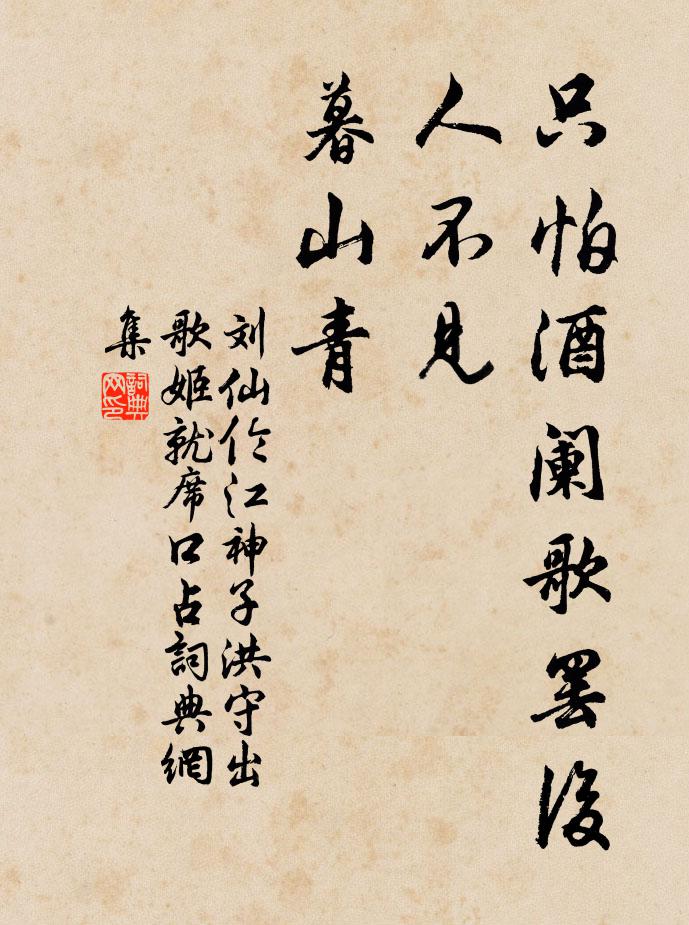 只怕酒阑歌罢後
人不见
暮山青
刘仙伦江神子洪守出
歌姬就席口占詞典網
集
詞典
网印